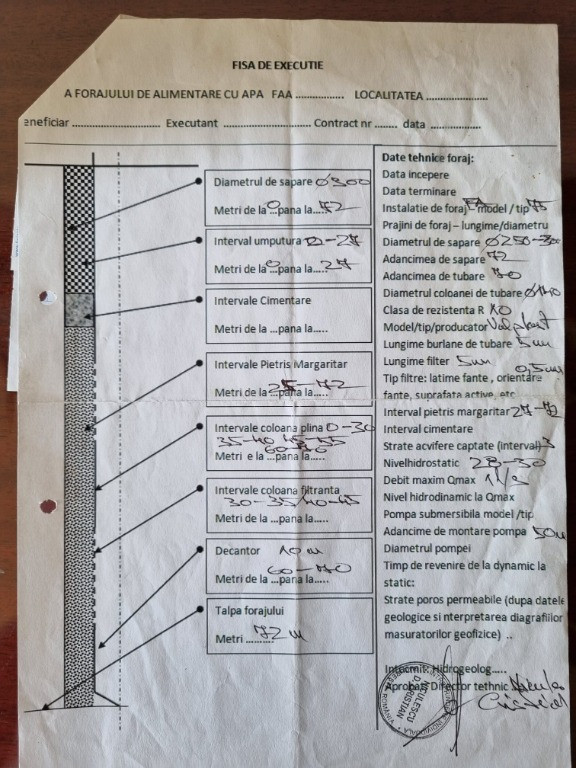 FISA DE EXECUTIE
A FORAJULUI DE ALIMENTARE CU APA FAA ................ LOCALITATEA ....................
eneficiar ............................. Executant ............................. Contract nr ........ data ................
Diametrul de sapare Ø300
Metri de la 0 pana la.....72
Interval umputura 0-27
Metri de la 0 pana la.....27
Intervale Cimentare
Metri de la ...pana la.....
Intervale Pietris Margaritar
Metri de la ...pana la.....
Intervale coloana plina 0-30
35-40 45-55
Metri e la ...pana la.....
Intervale coloana filtranta
30-35/40-45
Metri de la ...pana la.....
Decantor 10 m
60-70
Metri de la ...pana la.....
Talpa forajului
Metri 72 m
Date tehnice foraj:
Data incepere
Data terminare
Instalatie de foraj – model / tip 75
Prajini de foraj – lungime/diametru
Diametrul de sapare Ø250-300
Adancimea de sapare 72
Adancimea de tubare 70
Diametrul coloanei de tubare Ø140
Clasa de rezistenta R 10
Model/tip/producator Valplast
Lungime burlane de tubare 5 m
Lungime filter 5 m
0,5
Tip filtre: latime fante , orientare
fante, suprafata active, etc
Interval pietris margaritar 27-72
Interval cimentare
Strate acvifere captate (interval)
Nivelhidrostatic 28-30
Debit maxim Qmax
Nivel hidrodinamic la Qmax
Pompa submersibila model /tip
Adancime de montare pompa 50m
Diametrul pompei
Timp de revenire de la dynamic la
static:
Strate poros permeabile (dupa datele
geologice si nterpretarea diagrafiilor
masuratorilor geofizice) ..
Intocmit Hidrogeolog.....
Aprobat Director tehnic
NICULESCU
D. CRISTIAN